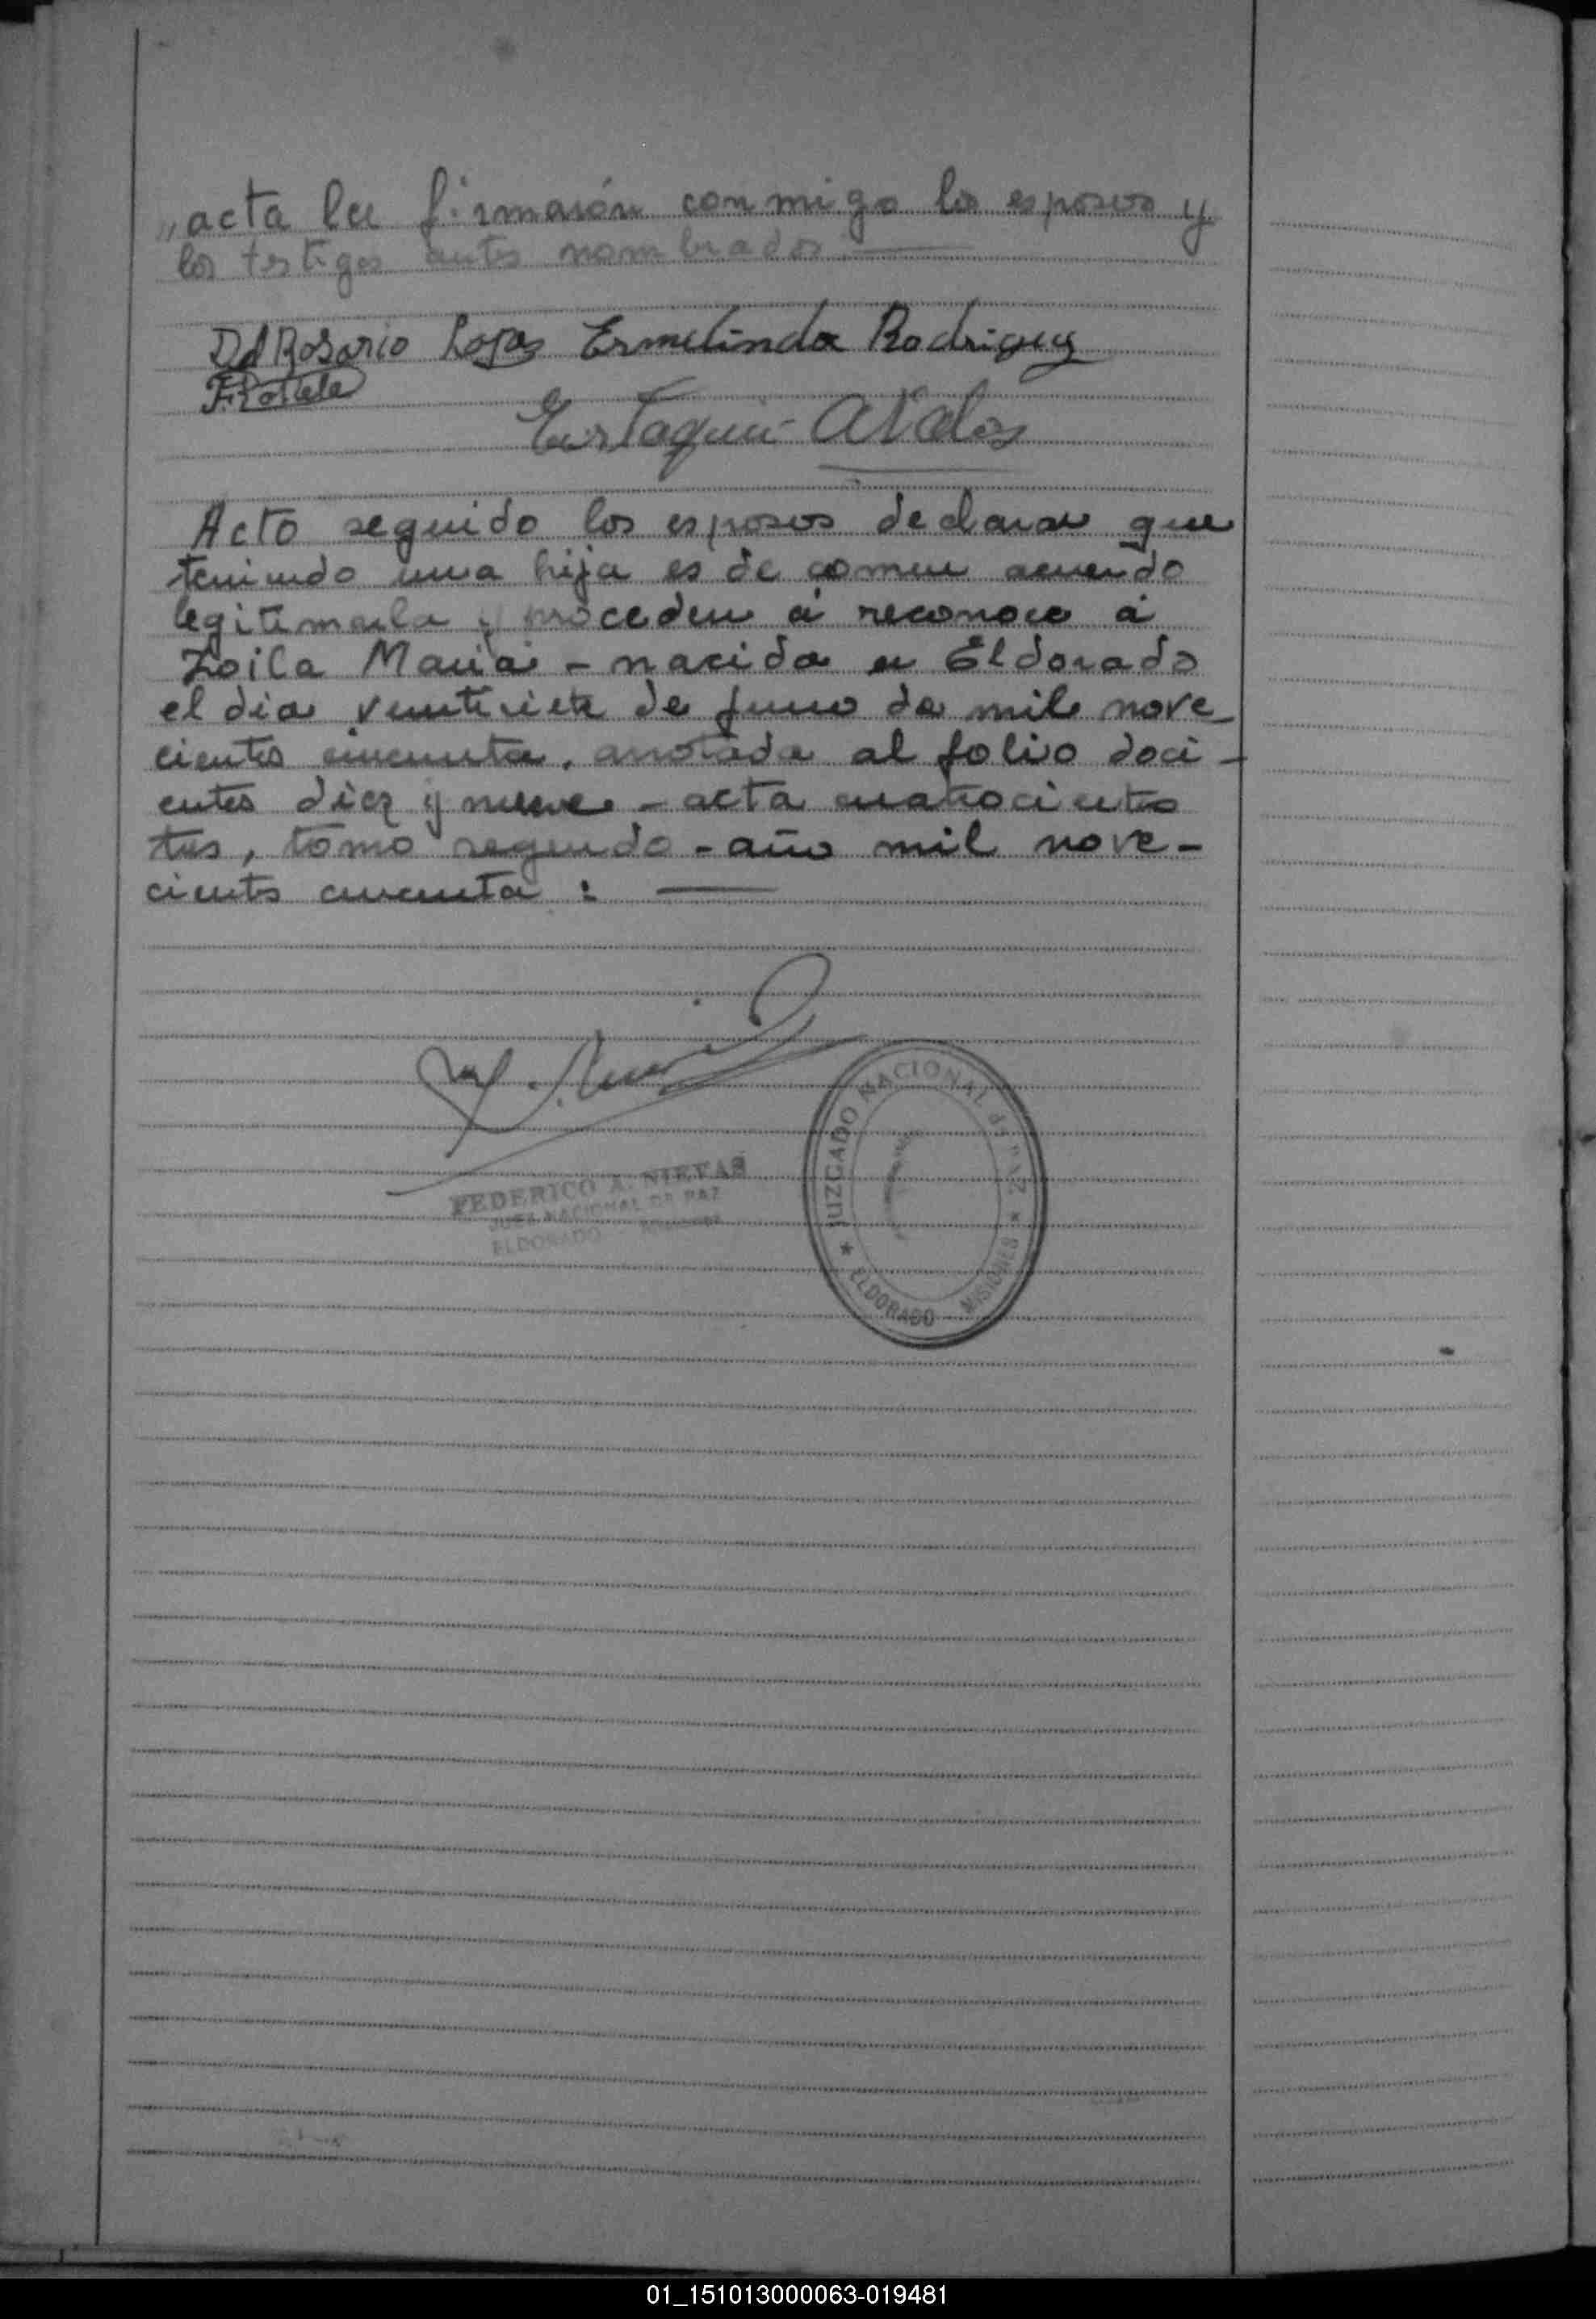 „acta la firmarón conmigo los esposos y
los testigos antes nombrados.
Del Rosario Lopes Ermelinda Rodriguez
Eustaquio Avalos
Acto seguido los esposos declaran que
teniendo una hija es de comun acuerdo
legitimarla y proceden á reconoce á
Zoila Maria - nacida en Eldorado
el dia veintisiete de Junio de mil nove
cientos cincuenta, anotada al folio doci-
entos diez y nueve - acta cuatrociento
tres, tomo segundo - año mil nove-
cientos cincuenta :
FEDERICO A. NIEVAS
JUEZ NACIONAL DE PAZ
ELDORADO
JUZGADO NACIONAL de PAZ
★ ELDORADO - MISIONES ★
01_151013000063-019481